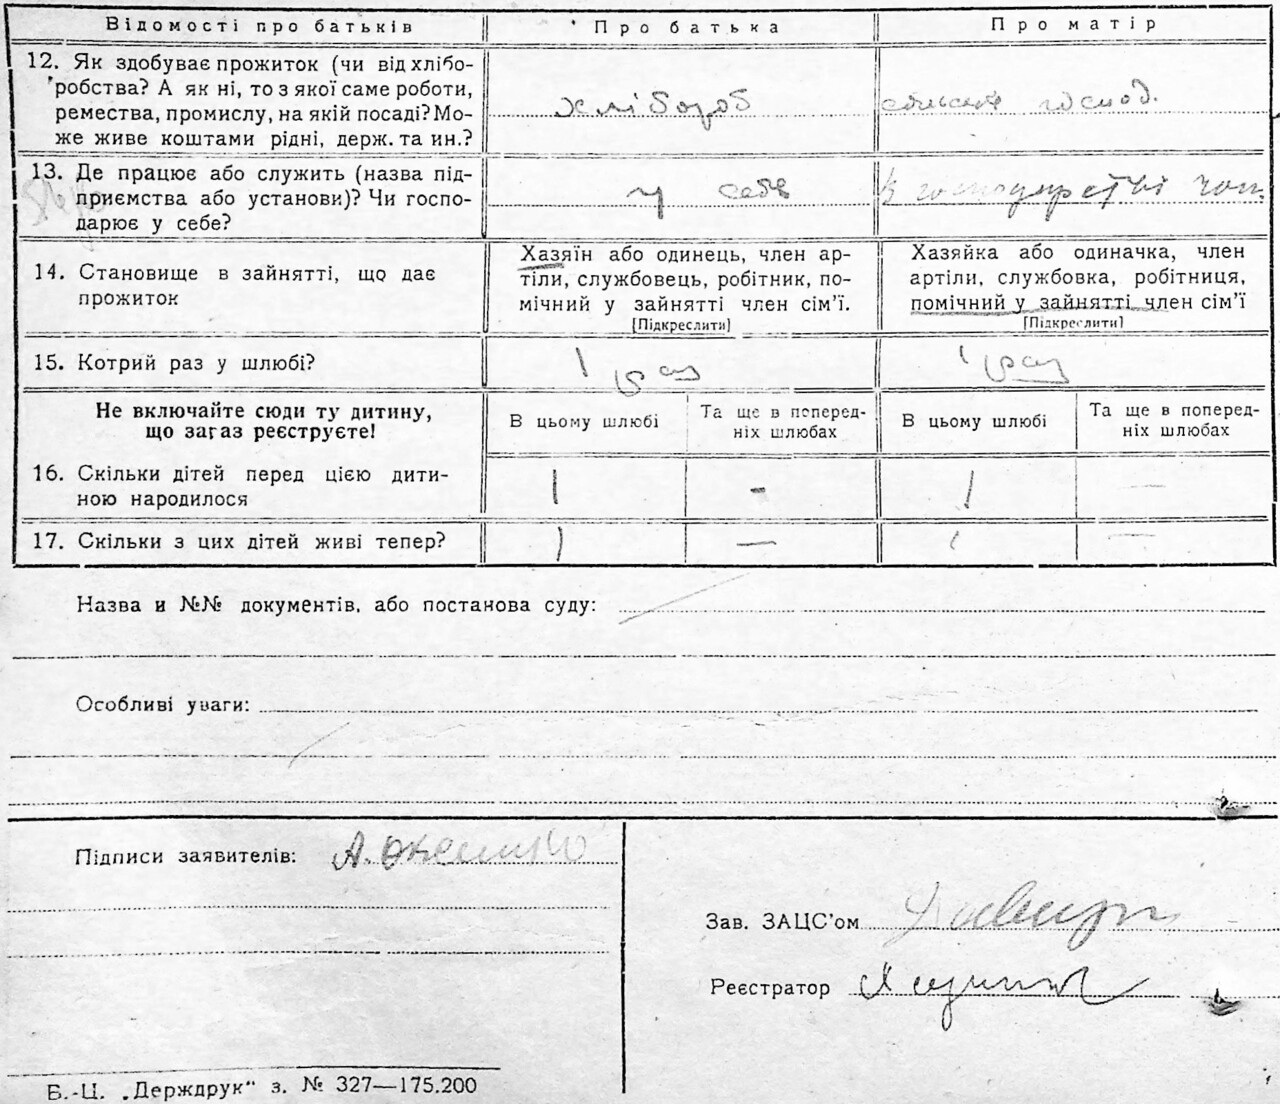 Відомості про батьків
Про батька
Про матір
12. Як здобуває прожиток (чи від хлібо-
робства? А як ні, то з якої саме роботи,
ремества, промислу, на якій посаді? Мо-
же живе коштами рідні, держ. та ин.?
хлібороб
господ.
13. Де працює або служить (назва під-
приємства або установи)? Чи госпо-
дарює у себе?
у себе
В господарстві чол.
14. Становище в зайнятті, що дає
прожиток
Хазяїн або одинець, член ар-
тіли, службовець, робітник, по-
мічний у зайнятті член сім’ї.
[Підкреслити]
Хазяйка або одиначка, член
артіли, службовка, робітниця,
помічний у зайнятті член сім’ї
[Підкреслити]
15. Котрий раз у шлюбі?
1 раз
1 раз
Не включайте сюди ту дитину,
що загаз реєструєте!
В цьому шлюбі
Та ще в поперед-
ніх шлюбах
В цьому шлюбі
Та ще в поперед-
ніх шлюбах
16. Скільки дітей перед цією дити-
ною народилося
1
-
1
—
17. Скільки з цих дітей живі тепер?
1
—
1
—
Назва и №№ документів, або постанова суду:
Особливі уваги:
Підписи заявителів: А.
Зав. ЗАЦС’ом
Реєстратор
Б.-Ц. „Держдрук“ з. № 327—175.200